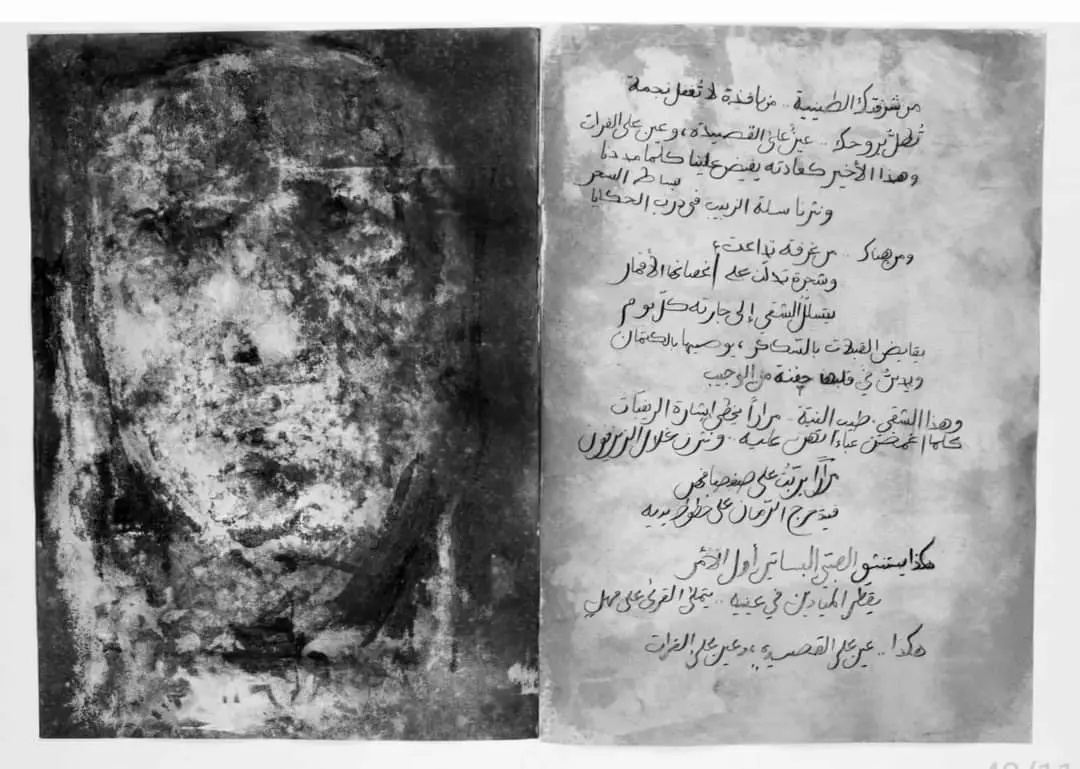 من شرفتك الطينية .. من نافذة لا تُغفل نجمة
تُطلّ بروحك .. عينٌ على القصيدة، وعين على الفرات
وهذا الأخير كعادته يفيض علينا كلّما مددنا
بساط السحر
ونثرنا سلة الزبيب في درب الحكايا
ومن هناك .. من غرفة تداعت،
وشجرة تدلّت على أغصانها الأقمار
يتسلّل الشقي إلى جارته كلّ يوم
يقايض القبلات بالسكاكر، يوصيها بالكتمان
ويدسّ في قلبها حفنة من الوجيب
وهذا الشقي .. طيب النية .. مراراً يخطئ إشارة الريفيات
كلما غمضن عباءاتهن عليه .. ونثرن غلال الزيزفون
مراراً يربّت على
على خطوط يديه
هكذا يستنشق الصبي البساتين أول الأمر
يقطر الميادين في عينيه .. يتملّى القرى على مهلٍ
هكذا .. عين على القصيدة، وعين على الفرات